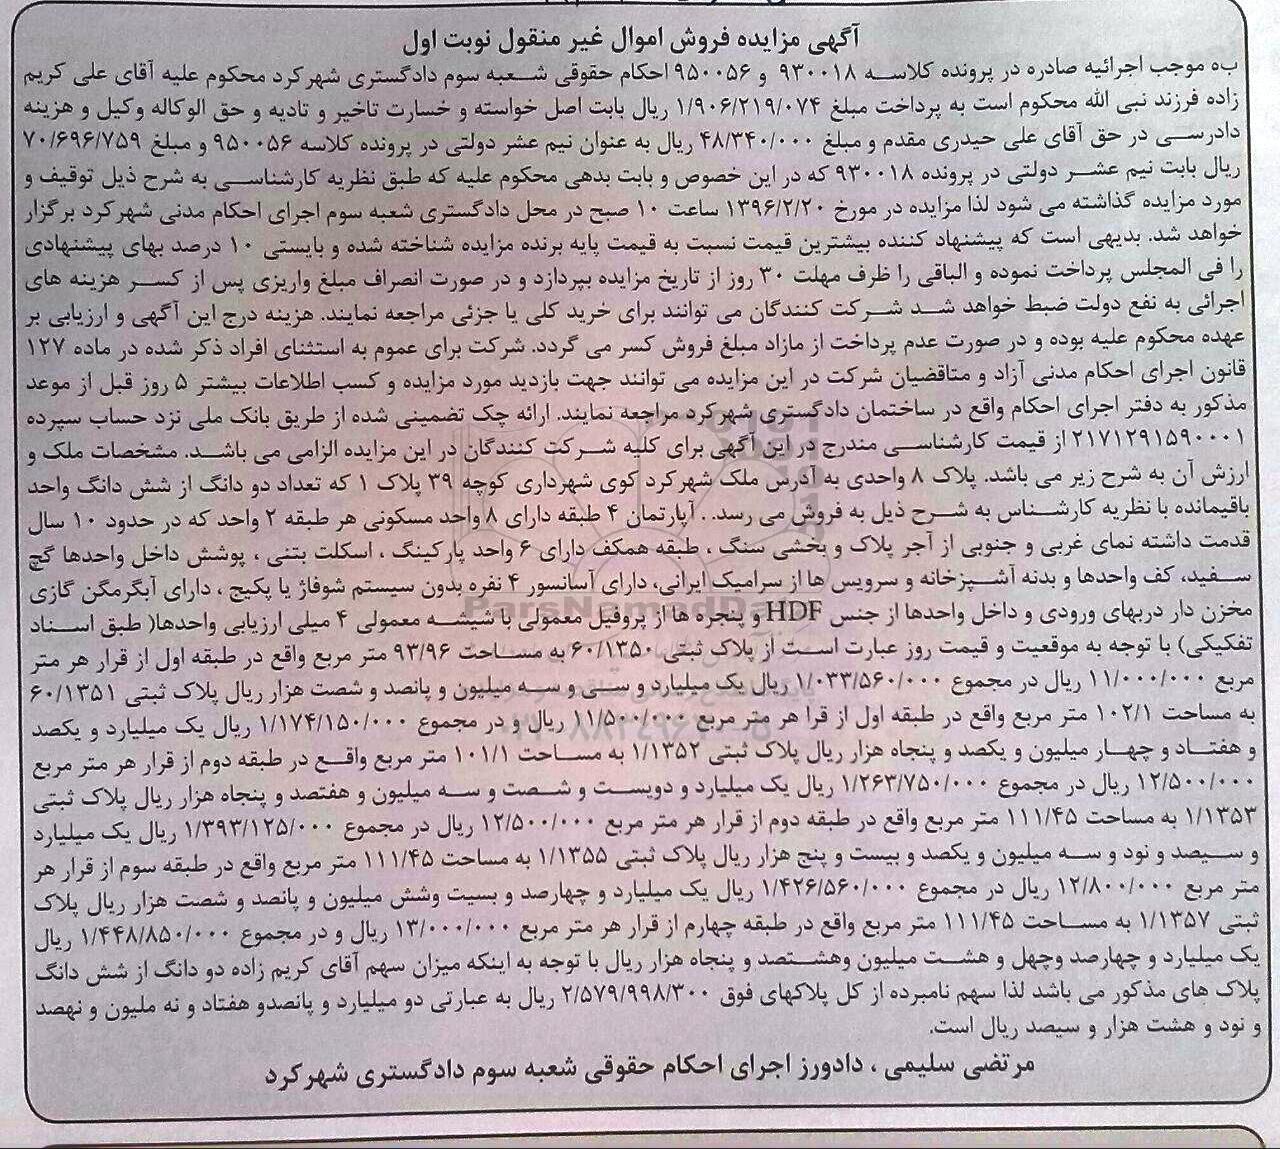 آگهی مزایده فروش اموال غیر منقول نوبت اول
به موجب اجرائیه صادره در پرونده کلاسه ۹۳۰۰۱۸ و ۹۵۰۰۵۶ احکام حقوقی شعبه سوم دادگستری شهرکرد محکوم علیه آقای علی کریم
زاده فرزند نبی الله محکوم است به پرداخت مبلغ ۱/۹۰۶/۲۱۹/۰۷۴ ریال بابت اصل خواسته و خسارت تاخیر و تادیه و حق الوکاله وکیل و هزینه
دادرسی در حق آقای علی حیدری مقدم و مبلغ ۴۸/۳۴۰/۰۰۰ ریال به عنوان نیم عشر دولتی در پرونده کلاسه ۹۵۰۰۵۶ و مبلغ ۷۰/۶۹۶/۷۵۹
ریال بابت نیم عشر دولتی در پرونده ۹۳۰۰۱۸ که در این خصوص و بابت بدهی محکوم علیه که طبق نظریه کارشناسی به شرح ذیل توقیف و
مورد مزایده گذاشته می شود لذا مزایده در مورخ ۱۳۹۶/۲/۲۰ ساعت ۱۰ صبح در محل دادگستری شعبه سوم اجرای احکام مدنی شهرکرد برگزار
خواهد شد. بدیهی است که پیشنهاد کننده بیشترین قیمت نسبت به قیمت پایه برنده مزایده شناخته شده و بایستی ۱۰ درصد بهای پیشنهادی
را فی المجلس پرداخت نموده و الباقی را ظرف مهلت ۳۰ روز از تاریخ مزایده بپردازد و در صورت انصراف مبلغ واریزی پس از کسر هزینه های
اجرائی به نفع دولت ضبط خواهد شد شرکت کنندگان می توانند برای خرید کلی یا جزئی مراجعه نمایند. هزینه درج این آگهی و ارزیابی بر
عهده محکوم علیه بوده و در صورت عدم پرداخت از مازاد مبلغ فروش کسر می گردد. شرکت برای عموم به استثنای افراد ذکر شده در ماده ۱۲۷
قانون اجرای احکام مدنی آزاد و متاقضیان شرکت در این مزایده می توانند جهت بازدید مورد مزایده و کسب اطلاعات بیشتر ۵ روز قبل از موعد
مذکور به دفتر اجرای احکام واقع در ساختمان دادگستری شهرکرد مراجعه نمایند. ارائه چک تضمینی شده از طریق بانک ملی نزد حساب سپرده
۲۱۷۱۲۹۱۵۹۰۰۰۱ از قیمت کارشناسی مندرج در این آگهی برای کلیه شرکت کنندگان در این مزایده الزامی می باشد. مشخصات ملک و
ارزش آن به شرح زیر می باشد. پلاک ۸ واحدی به آدرس ملک شهرکرد کوی شهرداری کوچه ۳۹ پلاک ۱ که تعداد دو دانگ از شش دانگ واحد
باقیمانده با نظریه کارشناس به شرح ذیل به فروش می رسد.. آپارتمان ۴ طبقه دارای ۸ واحد مسکونی هر طبقه ۲ واحد که در حدود ۱۰ سال
قدمت داشته نمای غربی و جنوبی از آجر پلاک و بخشی سنگ ، طبقه همکف دارای ۶ واحد پارکینگ ، اسکلت بتنی ، پوشش داخل واحدها گچ
سفید، کف واحدها و بدنه آشپزخانه و سرویس ها از سرامیک ایرانی، دارای آسانسور ۴ نفره بدون سیستم شوفاژ یا پکیج ، دارای آبگرمکن گازی
مخزن دار دربهای ورودی و داخل واحدها از جنس HDF و پنجره ها از پروفیل معمولی با شیشه معمولی ۴ میلی ارزیابی واحدها( طبق اسناد
تفکیکی) با توجه به موقعیت و قیمت روز عبارت است از پلاک ثبتی ۶۰/۱۳۵۰ به مساحت ۹۳/۹۶ متر مربع واقع در طبقه اول از قرار هر متر
مربع ۱۱/۰۰۰/۰۰۰ ریال در مجموع ۱/۰۳۳/۵۶۰/۰۰۰ ریال یک میلیارد و سی و سه میلیون و پانصد و شصت هزار ریال پلاک ثبتی ۶۰/۱۳۵۱
به مساحت ۱۰۲/۱ متر مربع واقع در طبقه اول از قرا هر متر مربع ۱۱/۵۰۰/۰۰۰ ریال و در مجموع ۱/۱۷۴/۱۵۰/۰۰۰ ریال یک میلیارد و یکصد
و هفتاد و چهار میلیون و یکصد و پنجاه هزار ریال پلاک ثبتی ۱/۱۳۵۲ به مساحت ۱۰۱/۱ متر مربع واقع در طبقه دوم از قرار هر متر مربع
۱۲/۵۰۰/۰۰۰ ریال در مجموع ۱/۲۶۳/۷۵۰/۰۰۰ ریال یک میلیارد و دویست و شصت و سه میلیون و هفتصد و پنجاه هزار ریال پلاک ثبتی
۱/۱۳۵۳ به مساحت ۱۱۱/۴۵ متر مربع واقع در طبقه دوم از قرار هر متر مربع ۱۲/۵۰۰/۰۰۰ ریال در مجموع ۱/۳۹۳/۱۲۵/۰۰۰ ریال یک میلیارد
و سیصد و نود و سه میلیون و یکصد و بیست و پنج هزار ریال پلاک ثبتی ۱/۱۳۵۵ به مساحت ۱۱۱/۴۵ متر مربع واقع در طبقه سوم از قرار هر
متر مربع ۱۲/۸۰۰/۰۰۰ ریال در مجموع ۱/۴۲۶/۵۶۰/۰۰۰ ریال یک میلیارد و چهارصد و بسیت وشش میلیون و پانصد و شصت هزار ریال پلاک
ثبتی ۱/۱۳۵۷ به مساحت ۱۱۱/۴۵ متر مربع واقع در طبقه چهارم از قرار هر متر مربع ۱۳/۰۰۰/۰۰۰ ریال و در مجموع ۱/۴۴۸/۸۵۰/۰۰۰ ریال
یک میلیارد و چهارصد وچهل و هشت میلیون وهشتصد و پنجاه هزار ریال با توجه به اینکه میزان سهم آقای کریم زاده دو دانگ از شش دانگ
پلاک های مذکور می باشد لذا سهم نامبرده از کل پلاکهای فوق ۲/۵۷۹/۹۹۸/۳۰۰ ریال به عبارتی دو میلیارد و پانصدو هفتاد و نه ملیون و نهصد
و نود و هشت هزار و سیصد ریال است.
مرتضی سلیمی ، دادورز اجرای احکام حقوقی شعبه سوم دادگستری شهرکرد